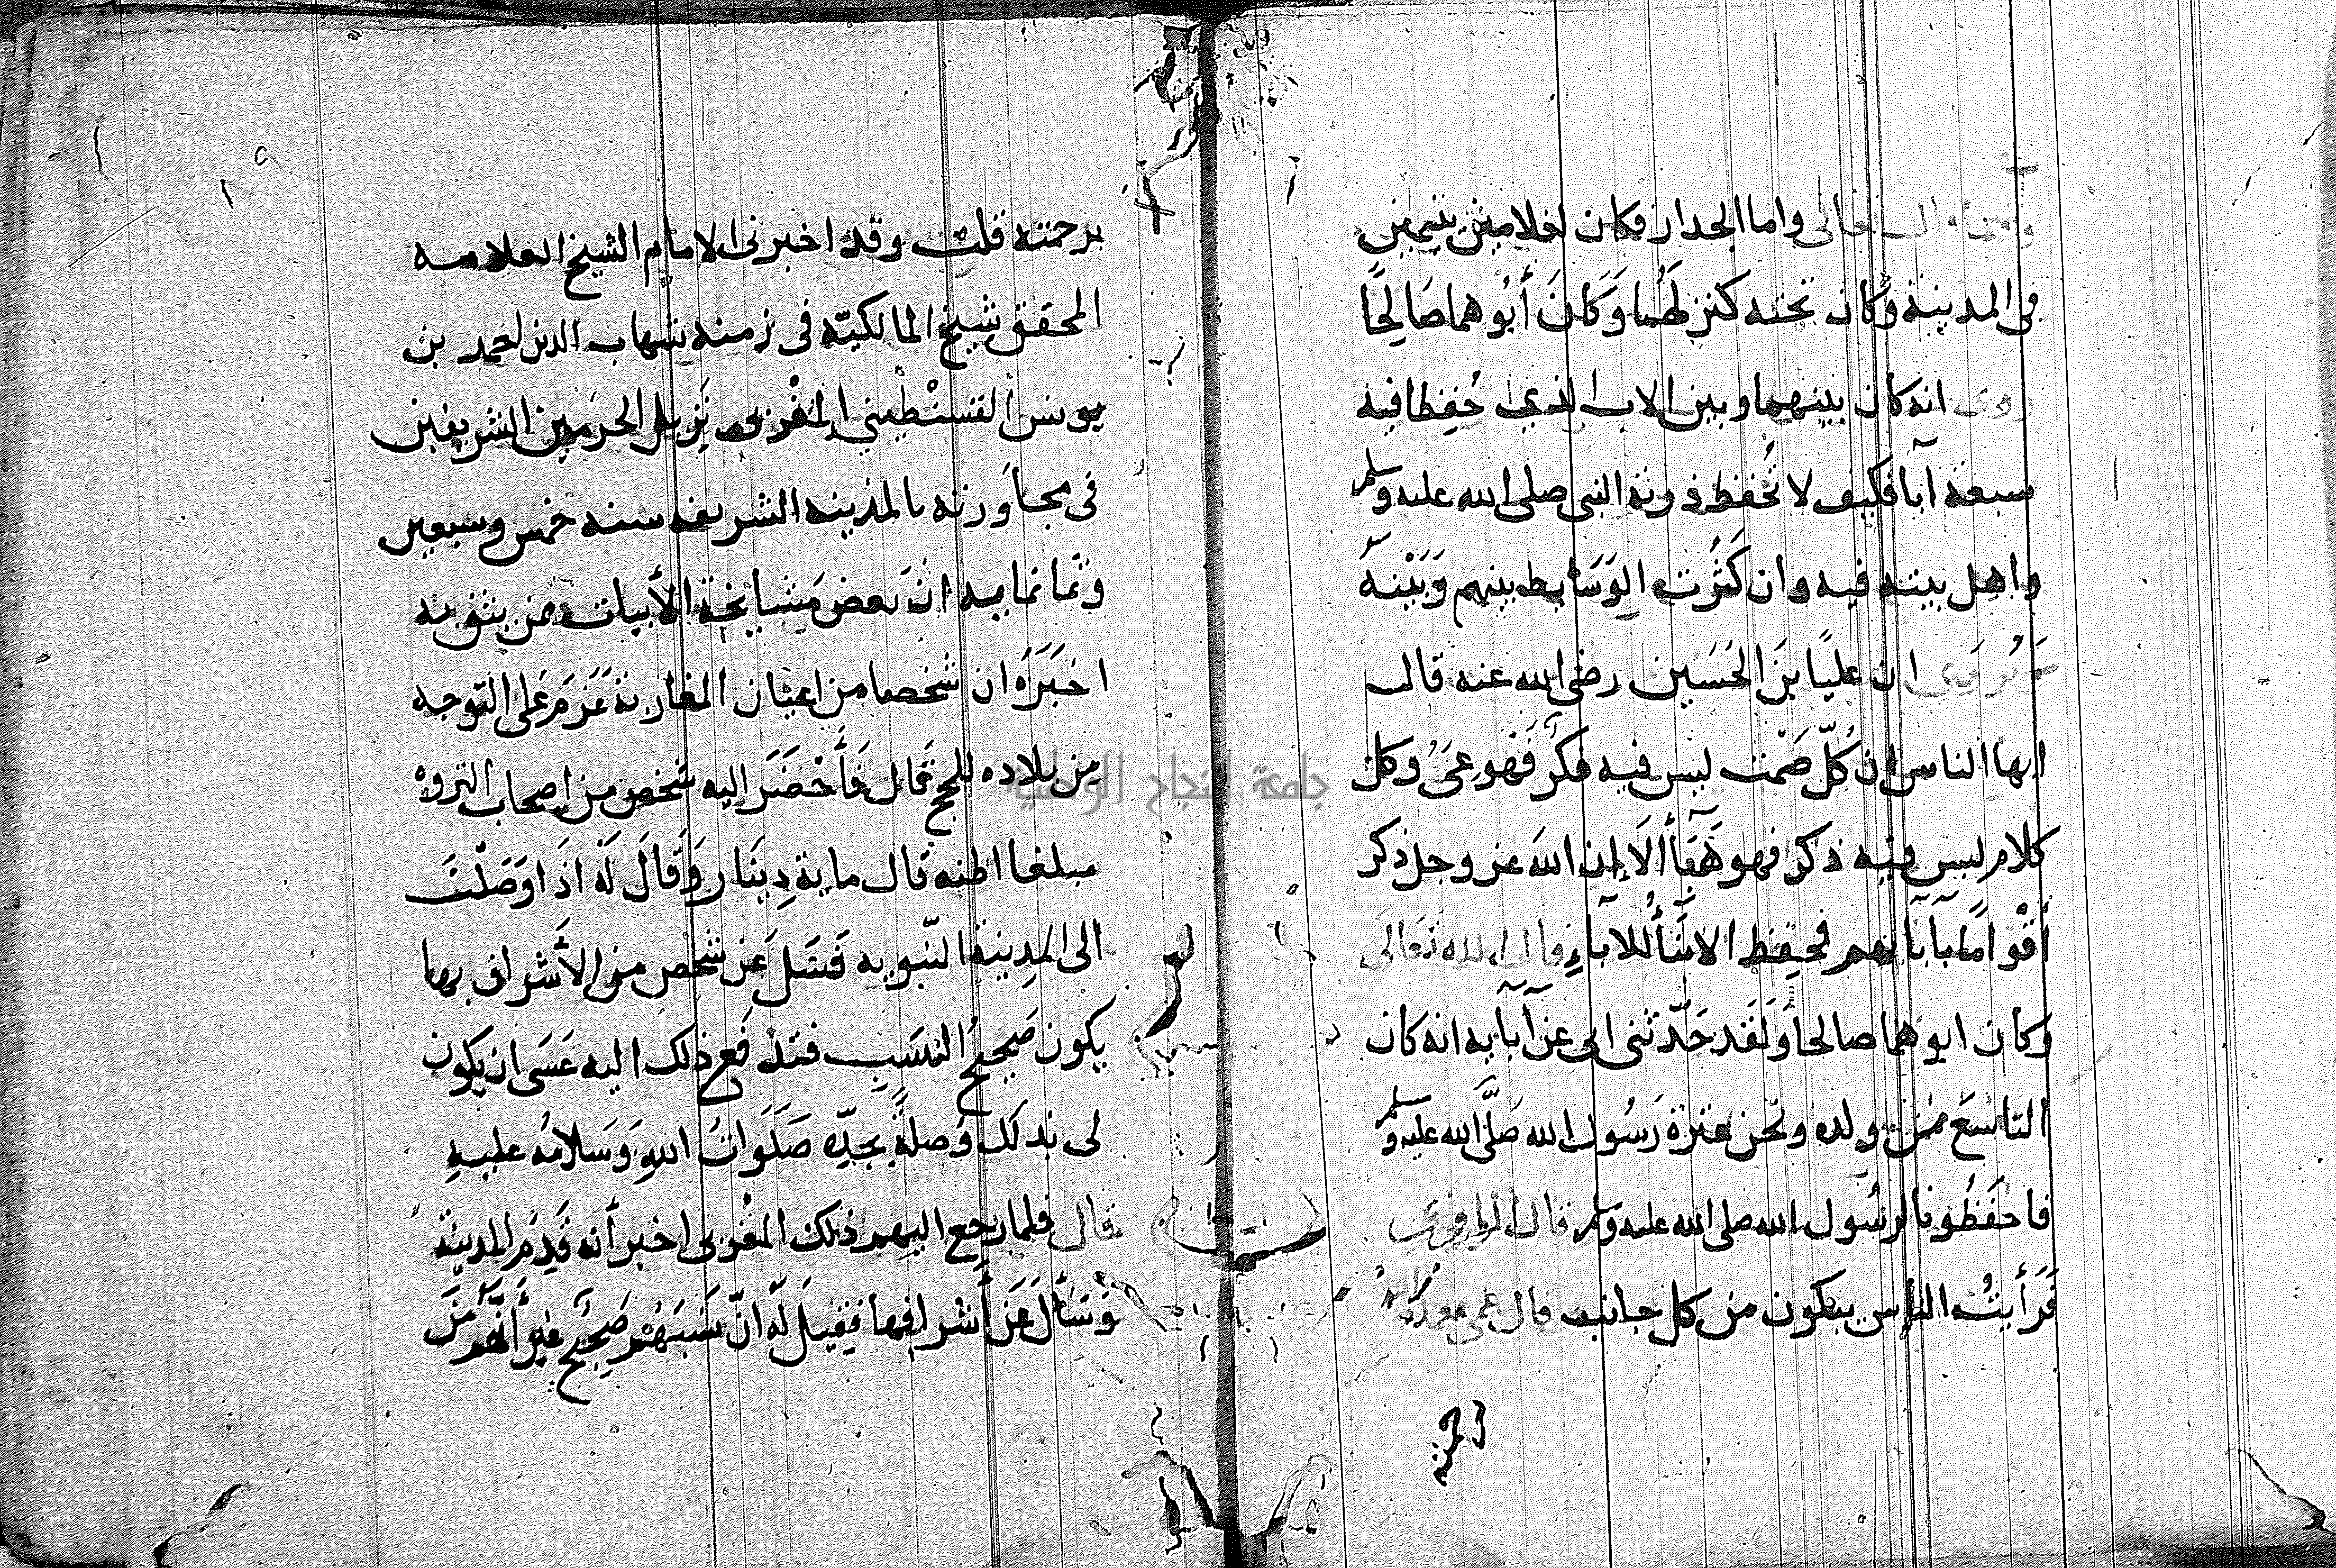 تعالى واما الجدار فكان لغلامين يتيمين
فى المدينة وكان تحته كنز لهُما وَكَانَ أبُوهما صَالِحًا
روى انه كان بينهما وبين الاب الذي حُفِظا فيه
سبعة آبا فكيف لا تُحفظ ذرية النبى صلى الله عليه وسلم
واهل بيته فيه وان كَثُرت الوَسَايط بينهم وَبَيْنهُ
ان عليًا بنَ الحُسَين رضى الله عنه قال
ايها الناس ان كُلّ صَمْت ليس فيه فكر فَهو عىّ وكل
كلام ليس فيه ذكر فهو هَبَآ ألاَ إن الله عز وجل ذكر
أقْوامًا بآبآيهم فحفِظ الابنَآ للآباءِ قال الله تَعَالَى
وكان ابوهما صالحا وَلَقَد حَدّثنى ابى عن آبآيه انه كان
التاسِعَ من ولده ونحن عترة رَسُول الله صَلَّى الله عليه وسلم
فاحفَظُونا لرسُول الله صلى الله عليه وسلم قال الراوى
فَرَأيتُ الناس يبكون من كل جانب قال عمى
رحمته
٨٩
برحمته قلت وقد اخبرنى الامام الشيخ العلامه
المحقق شيخ المالكيّه فى زمنه شهاب الدين احمد بن
يونس القسنْطيني المغْربى نَزيل الحرمين الشريفين
فى مجاوَرته بالمدينه الشريفه سنه خمس وسبعين
وثمانمايه انَ بعض مَشايخة الأبيات ممن يثق به
اخبَرَهُ ان شخصا من اعيان المغاربة عَزَم على التوجه
من بلاده للحج قال فَأَحْضَرَ اليه شخص من اصحاب الثروه
مبلغا اظنه قال ماية دِينَار وَقَالَ لَه اذَا وَصَلْتَ
الى المدينة النّبويه فَسَل عَن شخص من الأَشراف بها
يكون صَحِيحُ النسَبِ فتدفَع ذلك اليه عَسَى ان يكون
لى بذلك وُصلةً بجدِّه صَلَوَاتُ اللهِ وَسَلامُه عليهِ
قال فلما رجع اليهم ذلك المغْربى اخبر أنه قَدِمَ المدينة
وَسَأل عَن أشرافها فقيلَ لَه انّ نَسَبَهُم صَحِيح غير أنَّهم مَن